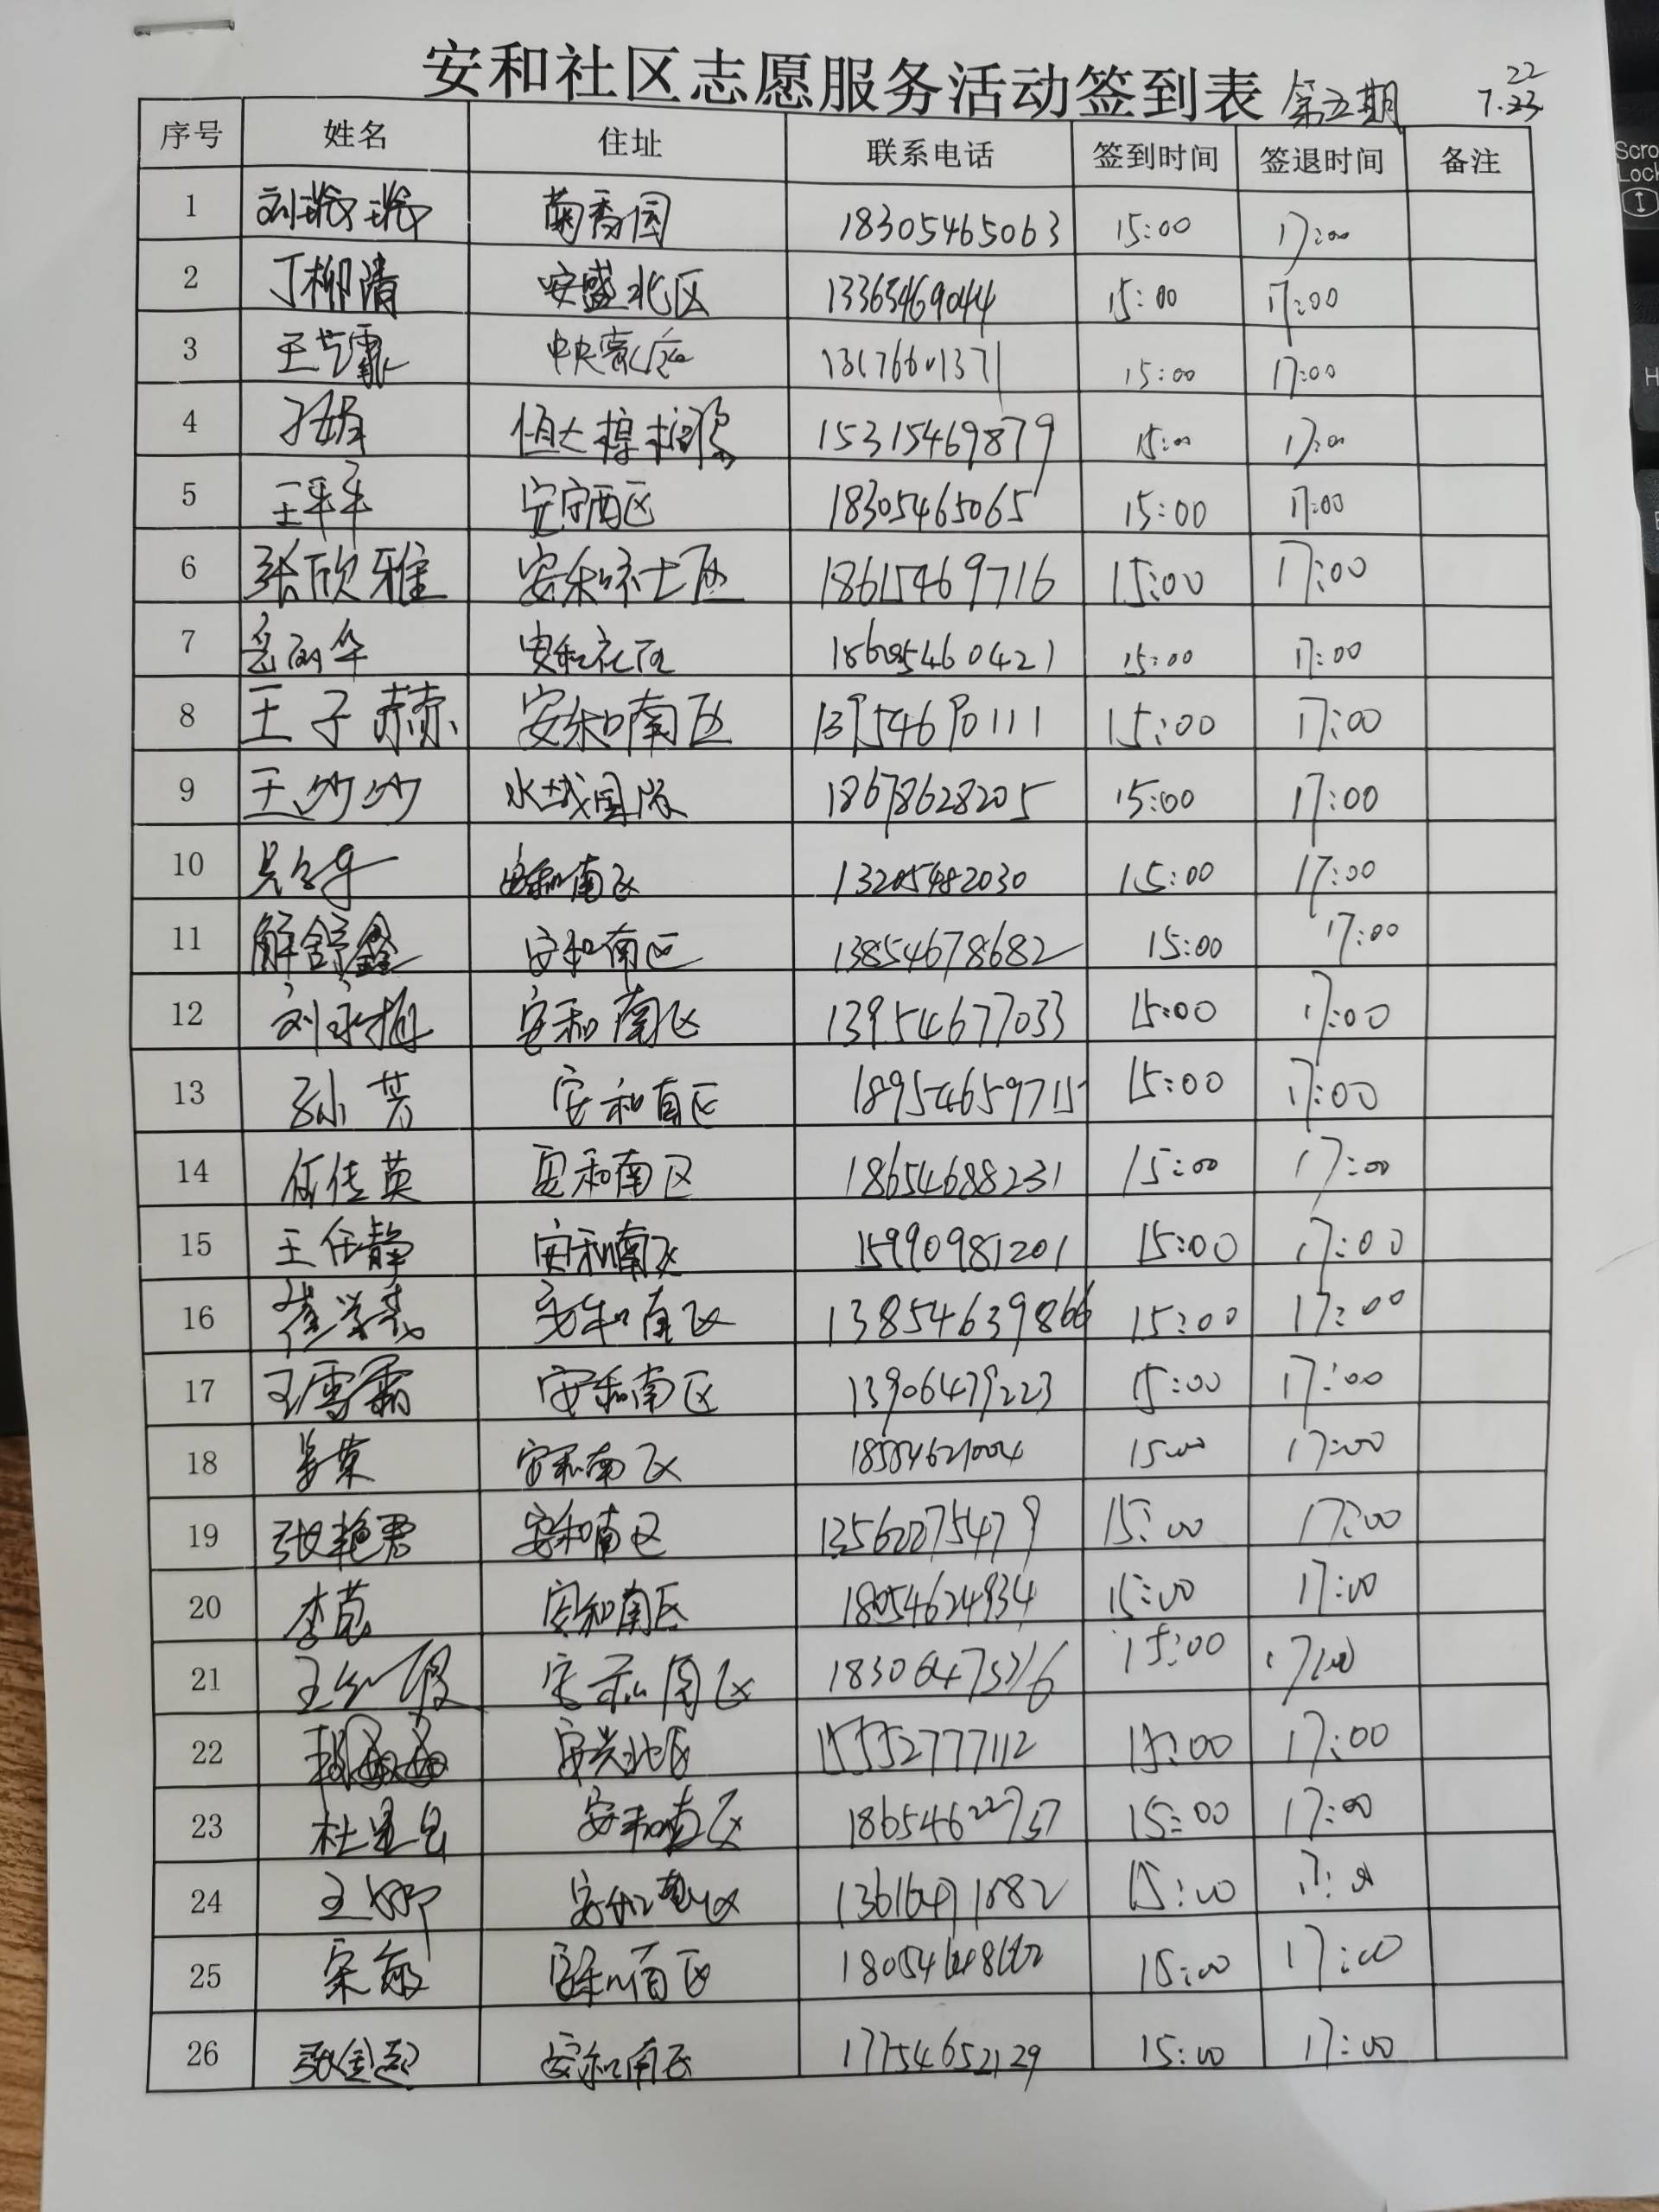 安和社区志愿服务活动签到表 第五期 22
7.23
序号 姓名 住址 联系电话 签到时间 签退时间 备注
1 刘 菊香园 18305465063 15:00 17:00
2 丁柳清 安盛北区 13365469044 15:00 17:00
3 王艺霏 中央豪庭 15:00 17:00
4 恒大 15315469879 15:00 17:00
5 王平平 安宁西区 18305465065 15:00 17:00
6 张欣雅 安和社区 18615469716 15:00 17:00
7 安和社区 15:00 17:00
8 王子赫 安和南区 13954690111 15:00 17:00
9 王沙沙 水城国际 18678628205 15:00 17:00
10 安和南区 13205482030 15:00 17:00
11 解舒鑫 安和南区 13854678682 15:00 17:00
12 刘永梅 安和南区 13954677033 15:00 17:00
13 孙芳 安和南区 18954659715 15:00 17:00
14 任传英 安和南区 18654688231 15:00 17:00
15 王任静 安和南区 15990981201 15:00 17:00
16 崔学 安和南区 13854639866 15:00 17:00
17 王雪霜 安和南区 13906479223 15:00 17:00
18 姜荣 安和南区 15:00 17:00
19 张艳君 安和南区 15:00 17:00
20 李苑 安和南区 18054624934 15:00 17:00
21 王 安和南区 15:00 17:00
22 安兴北区 15552777112 15:00 17:00
23 杜 安和南区 18654622737 15:00 17:00
24 王娜 安和南区 15:00 17:00
25 宋敏 安和南区 15:00 17:00
26 张金起 安和南区 17754652129 15:00 17:00